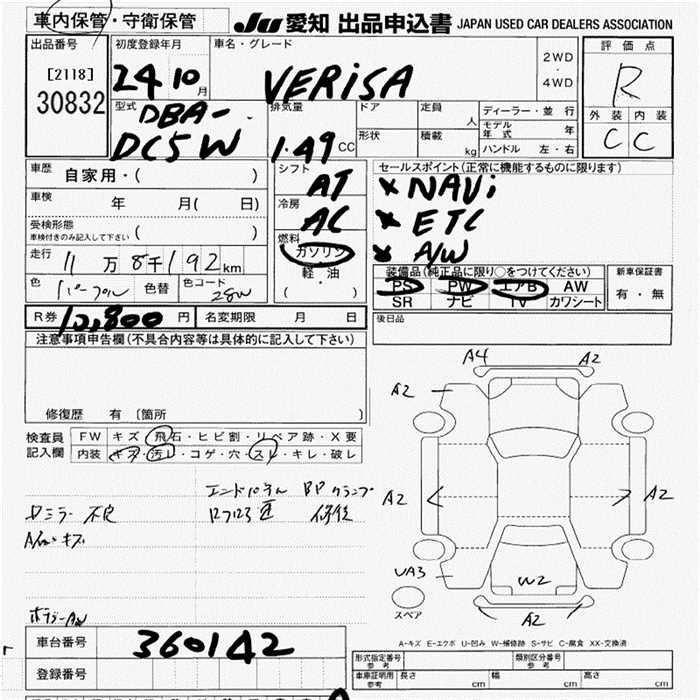 車内保管・守衛保管 JU 愛知 出品申込書 JAPAN USED CAR DEALERS ASSOCIATION
出品番号 初度登録年月 車名・グレード 評価点
[2118] 24年10月 VERISA 2WD・4WD R
30832 型式 DBA-DC5W 排気量 1.49CC ドア 定員 人 ディーラー・並行 外装 内装
形状 積載 kg モデル年式 年 C C
ハンドル 左・右
車歴 自家用・( ) シフト AT セールスポイント(正常に機能するものに限ります)
車検 年 月( 日) 冷房 AC ★NAVi
受検形態 車検付きのみ記入して下さい ( ) ★ETC
走行 11万8千192km 燃料 ガソリン ★A/W
軽・油 装備品(純正品に限り○をつけてください) 新車保証書
色 パープル 色替 色コード 28W ( ) PS PW エアB AW 有・無
SR ナビ TV カワシート
R券 10,800円 名変期限 月 日 後日品
注意事項申告欄(不具合内容等は具体的に記入して下さい)
A4 A2
A2
修復歴 有 〔箇所 〕
検査員記入欄 FW キズ・飛石・ヒビ割・リペア跡・X要
内装 キズ・汚レ・コゲ・穴・スレ・キレ・破レ
エンドパネル BPクランプ A2 A2
ミラー 不良 修後
キズ
UA3 W2
スペア A2
A-キズ E-エクボ U-凹み W-補修跡 S-サビ C-腐食 XX-交換済
車台番号 360142
形式指定番号 参考 類別区分番号 参考
登録番号 車庫証明用 参考 長さ cm 幅 cm 高さ cm